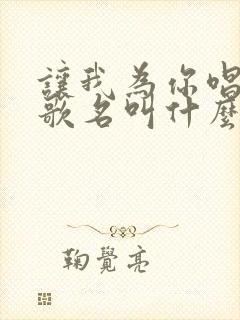 讓我為你唱
歌名叫什麼
鞠覺亮